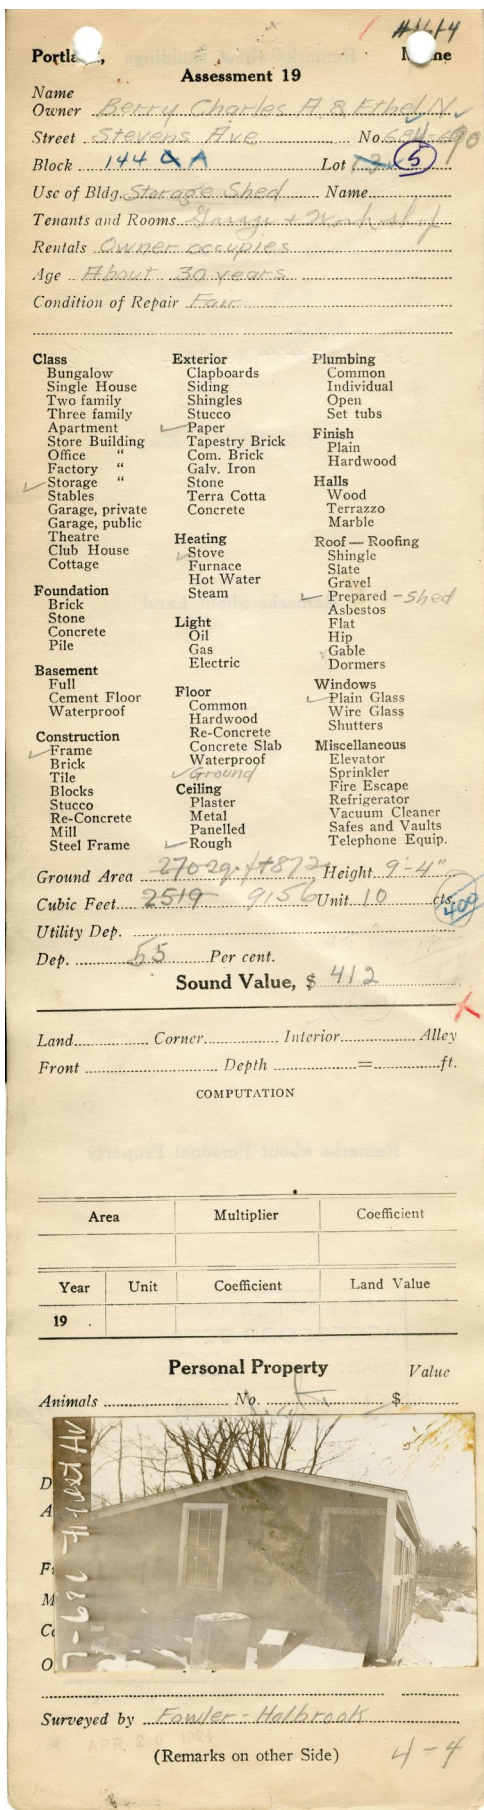 #1614
Portland, Maine
Assessment 19
Name
Owner Berry Charles A. & Ethel N.
Street Stevens Ave No. 684-690
Block 144 A Lot 5
Use of Bldg. Storage Shed Name
Tenants and Rooms Garage + Workshop
Rentals Owner occupies
Age About 30 years
Condition of Repair Fair
Class
Bungalow
Single House
Two family
Three family
Apartment
Store Building
Office "
Factory "
Storage "
Stables
Garage, private
Garage, public
Theatre
Club House
Cottage
Foundation
Brick
Stone
Concrete
Pile
Basement
Full
Cement Floor
Waterproof
Construction
Frame
Brick
Tile
Blocks
Stucco
Re-Concrete
Mill
Steel Frame
Exterior
Clapboards
Siding
Shingles
Stucco
Paper
Tapestry Brick
Com. Brick
Galv. Iron
Stone
Terra Cotta
Concrete
Heating
Stove
Furnace
Hot Water
Steam
Light
Oil
Gas
Electric
Floor
Common
Hardwood
Re-Concrete
Concrete Slab
Waterproof
Ground
Ceiling
Plaster
Metal
Panelled
Rough
Plumbing
Common
Individual
Open
Set tubs
Finish
Plain
Hardwood
Halls
Wood
Terrazzo
Marble
Roof — Roofing
Shingle
Slate
Gravel
Prepared - Shed
Asbestos
Flat
Hip
Gable
Dormers
Windows
Plain Glass
Wire Glass
Shutters
Miscellaneous
Elevator
Sprinkler
Fire Escape
Refrigerator
Vacuum Cleaner
Safes and Vaults
Telephone Equip.
Ground Area 270 Height 9'-4"
Cubic Feet 2519 9156 Unit 10 cts. 400
Utility Dep.
Dep. 55 Per cent.
Sound Value, $ 412
Land Corner Interior Alley
Front Depth = ft.
COMPUTATION
Area Multiplier Coefficient
Year Unit Coefficient Land Value
19
Personal Property Value
Animals No. $
Surveyed by Fowler - Holbrook
APR 26 1924
(Remarks on other Side) 4-4